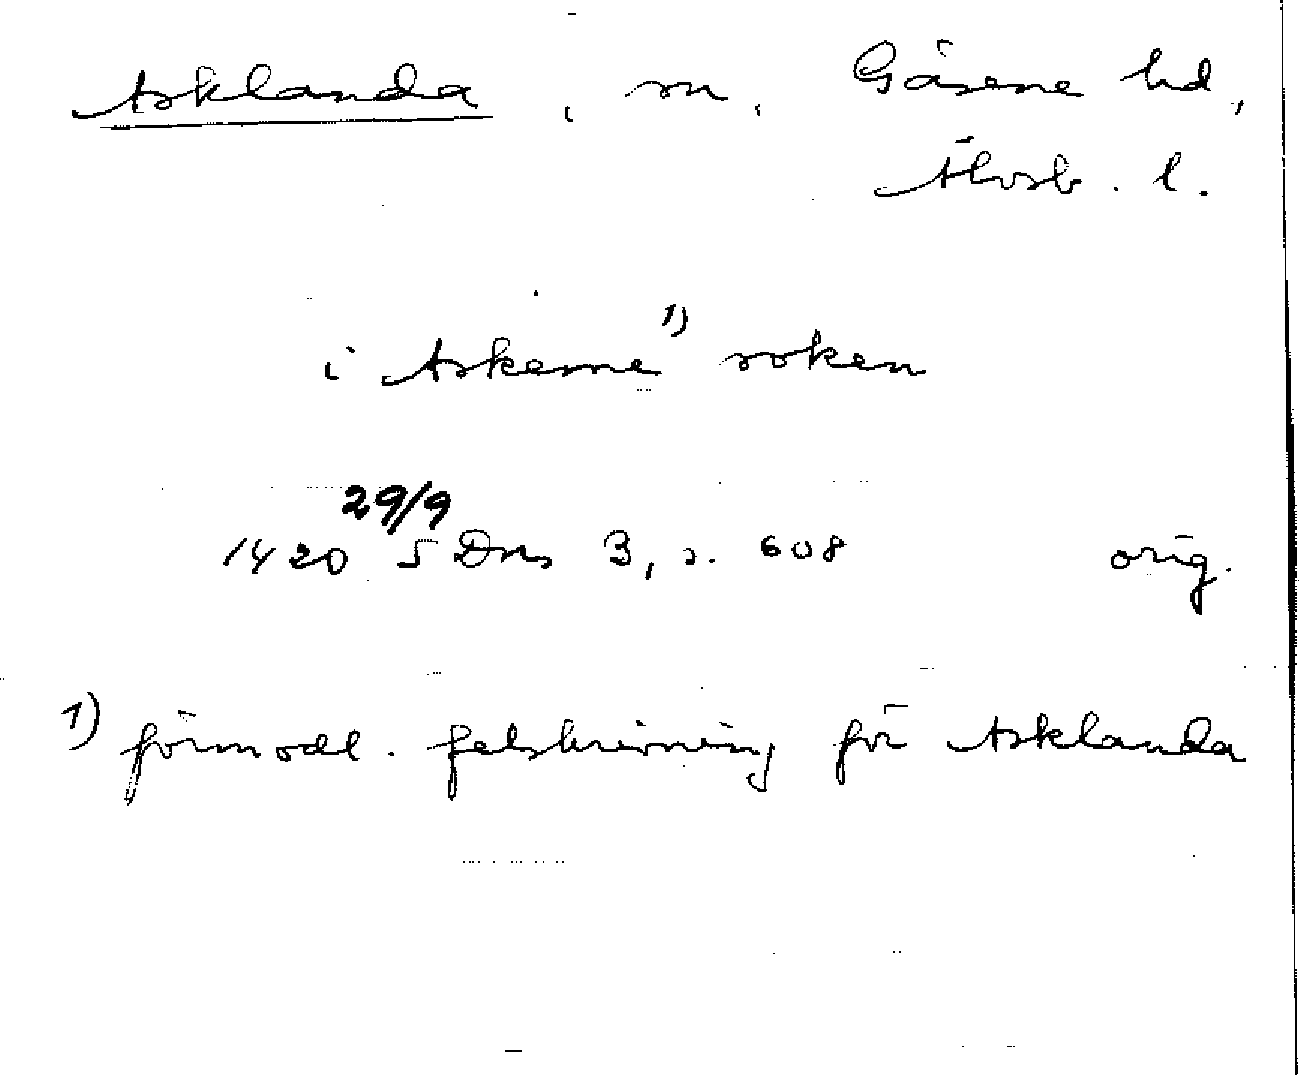 Asklanda, sn, Gäsene hd,
Älvsb. l.
i Askerne 1) soken
29/9
1420 SDns 3, s. 608 orig.
1) förmodl. felskrivning för Asklanda